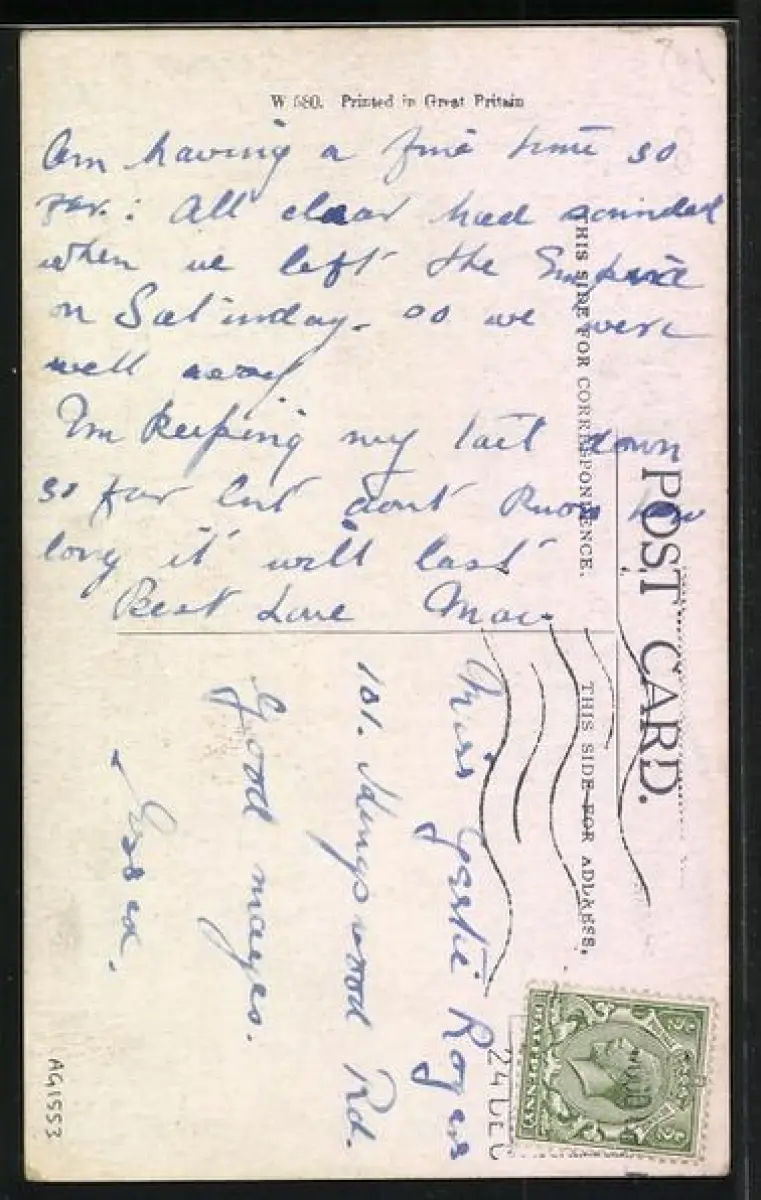 W 580. Printed in Great Britain
Am having a fine time so
far: All clear had sounded
when we left the Empire
on Saturday. so we were
well away
I'm keeping my tail down
so far but dont know how
long it will last
Best Love
THIS SIDE FOR CORRESPONDENCE.
POST CARD.
THIS SIDE FOR ADDRESS.
Miss Gertie Rogers
101. Kingswood Rd.
Goodmayes.
Essex.
24 DEC
HALFPENNY
AG1553